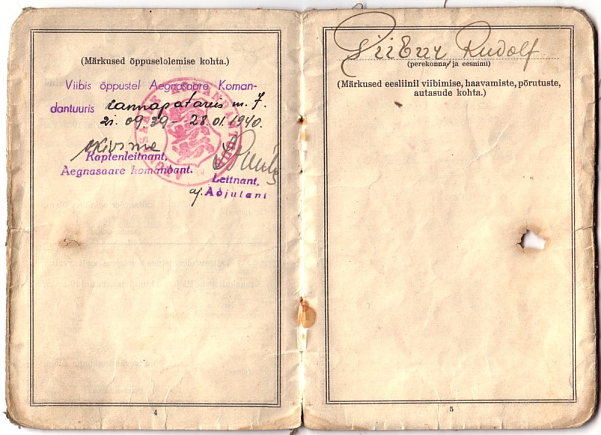 (Märkused õppuselolemise kohta.)
Viibis õppustel Aegnasaare Koman-
dantuuris rannapatareis m. 7.
21. 09 39 — 28. 01. 1940.
Kaptenleitnant,
Aegnasaare komandant.
Leitnant,
aj. Adjutant
4
Piibur Rudolf
(perekonna- ja eesnimi)
(Märkused eesliinil viibimise, haavamiste, põrutuste,
autasude kohta.)
5